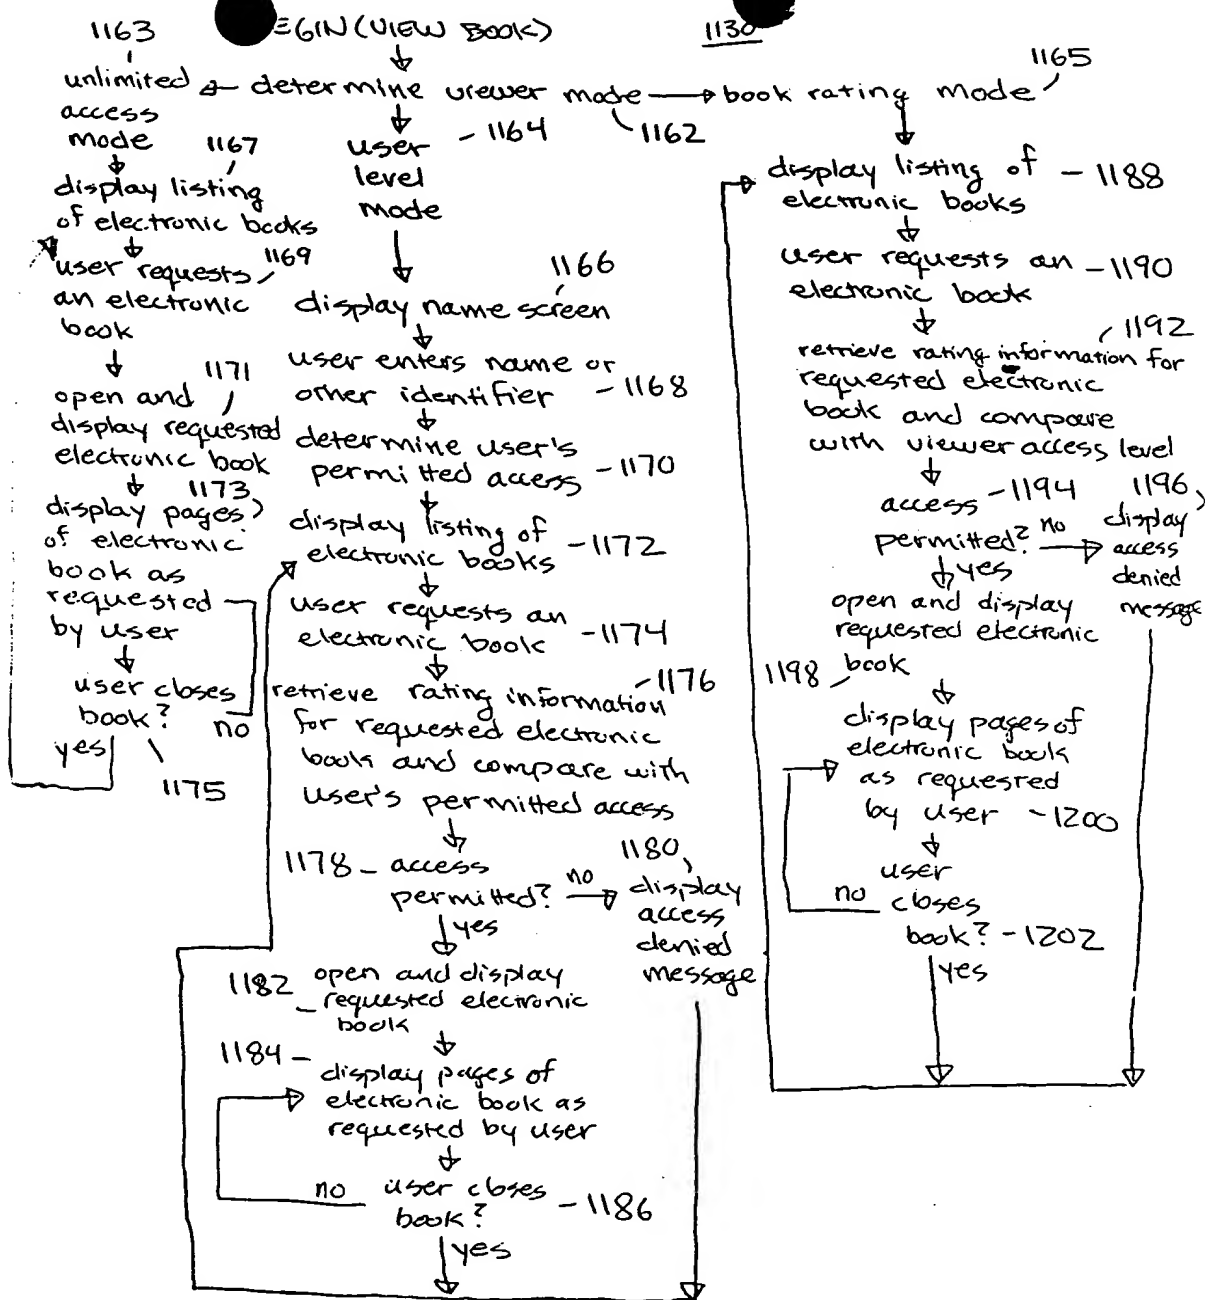 1163
EGIN (VIEW BOOK)
1130
1165
unlimited
access
mode
determine viewer mode
book rating mode
1162
1164
user
level
mode
1167
display listing
of electronic books
1169
user requests
an electronic
book
1171
open and
display requested
electronic book
1173
display pages
of electronic
book as
requested
by user
user closes
book?
no
yes
1175
1166
display name screen
user enters name or
other identifier - 1168
determine user's
permitted access - 1170
display listing of
electronic books - 1172
user requests an
electronic book - 1174
1176
retrieve rating information
for requested electronic
book and compare with
user's permitted access
1178 - access
permitted?
no
yes
1180
display
access
denied
message
1182
open and display
requested electronic
book
1184 -
display pages of
electronic book as
requested by user
user closes
book? - 1186
no
yes
display listing of - 1188
electronic books
user requests an - 1190
electronic book
1192
retrieve rating information for
requested electronic
book and compare
with viewer access level
access - 1194
permitted?
no
yes
1196
display
access
denied
message
open and display
requested electronic
book
1198
display pages of
electronic book
as requested
by user - 1200
user
closes
book? - 1202
no
yes